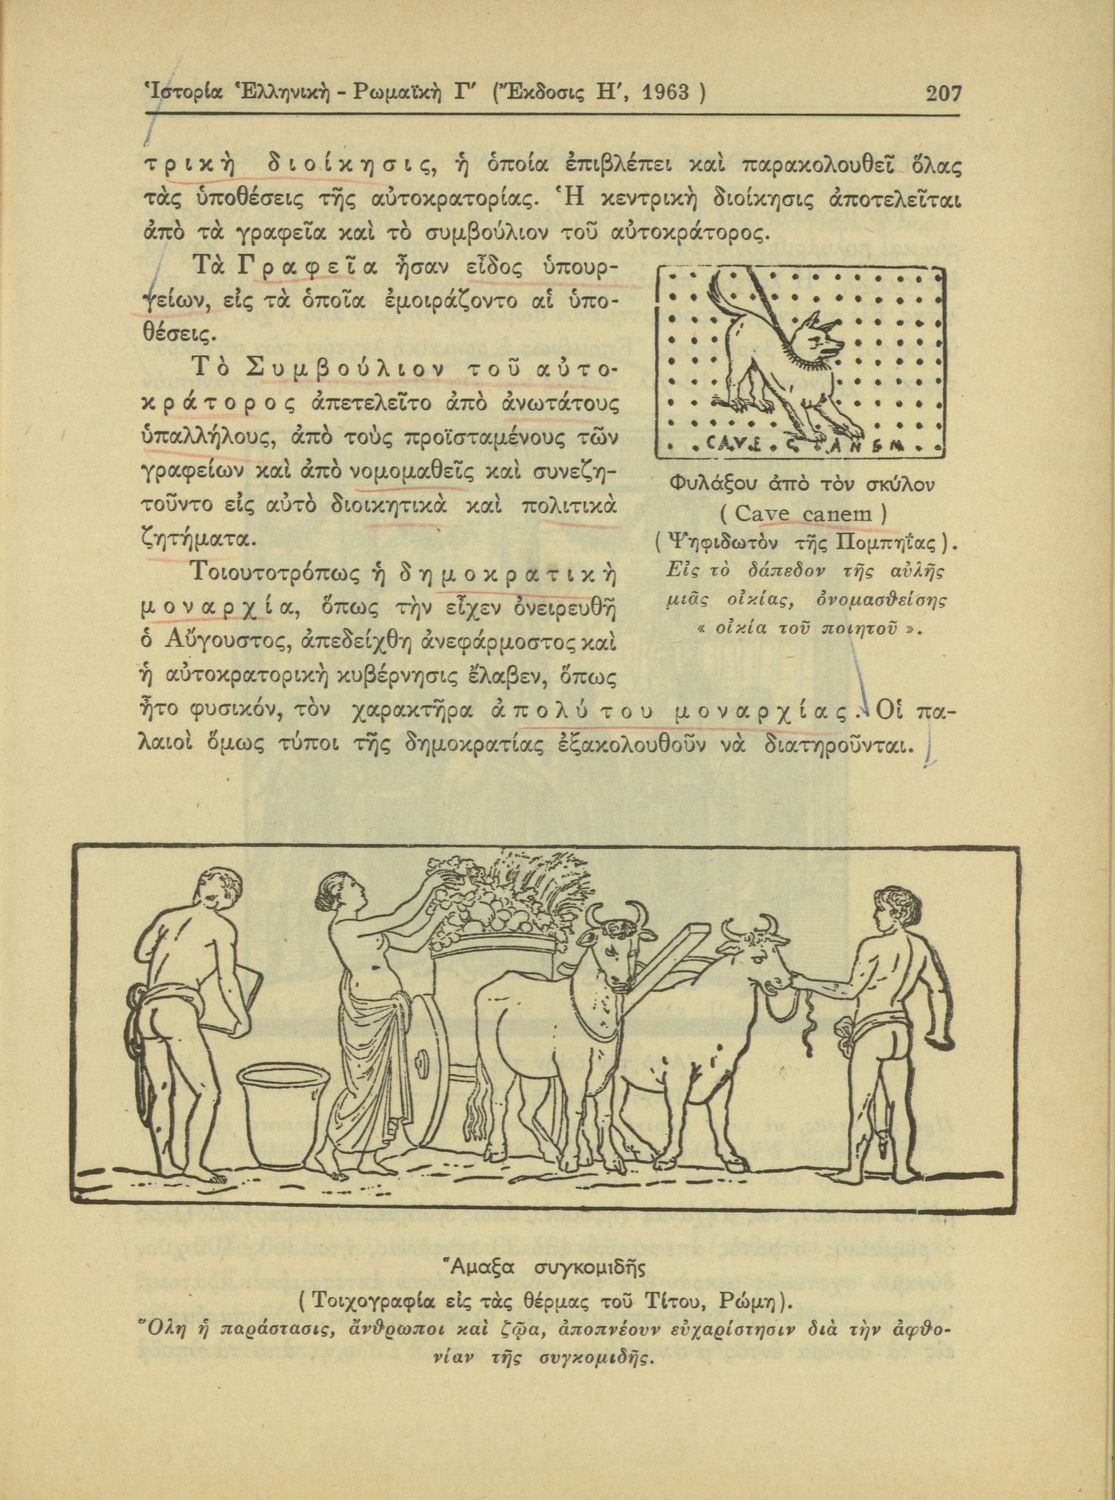 Ἱστορία Ἑλληνικὴ - Ρωμαϊκὴ Γ′ (Ἔκδοσις Η′, 1963 ) 207
τρικὴ διοίκησις, ἡ ὁποία ἐπιβλέπει καὶ παρακολουθεῖ ὅλας
τὰς ὑποθέσεις τῆς αὐτοκρατορίας. Ἡ κεντρικὴ διοίκησις ἀποτελεῖται
ἀπὸ τὰ γραφεῖα καὶ τὸ συμβούλιον τοῦ αὐτοκράτορος.
Τὰ Γραφεῖα ἦσαν εἶδος ὑπουρ-
γείων, εἰς τὰ ὁποῖα ἐμοιράζοντο αἱ ὑπο-
θέσεις.
Τὸ Συμβούλιον τοῦ αὐτο-
κράτορος ἀπετελεῖτο ἀπὸ ἀνωτάτους
ὑπαλλήλους, ἀπὸ τοὺς προϊσταμένους τῶν
γραφείων καὶ ἀπὸ νομομαθεῖς καὶ συνεζη-
τοῦντο εἰς αὐτὸ διοικητικὰ καὶ πολιτικὰ
ζητήματα.
Τοιουτοτρόπως ἡ δημοκρατικὴ
μοναρχία, ὅπως τὴν εἶχεν ὀνειρευθῆ
ὁ Αὔγουστος, ἀπεδείχθη ἀνεφάρμοστος καὶ
ἡ αὐτοκρατορικὴ κυβέρνησις ἔλαβεν, ὅπως
ἦτο φυσικόν, τὸν χαρακτῆρα ἀπολύτου μοναρχίας. Οἱ πα-
λαιοὶ ὅμως τύποι τῆς δημοκρατίας ἐξακολουθοῦν νὰ διατηροῦνται.
CAVE CANEM
Φυλάξου ἀπὸ τὸν σκύλον
( Cave canem )
( Ψηφιδωτὸν τῆς Πομπηΐας ).
Εἰς τὸ δάπεδον τῆς αὐλῆς
μιᾶς οἰκίας, ὀνομασθείσης
« οἰκία τοῦ ποιητοῦ ».
Ἅμαξα συγκομιδῆς
( Τοιχογραφία εἰς τὰς θέρμας τοῦ Τίτου, Ρώμη).
Ὅλη ἡ παράστασις, ἄνθρωποι καὶ ζῷα, ἀποπνέουν εὐχαρίστησιν διὰ τὴν ἀφθο-
νίαν τῆς συγκομιδῆς.